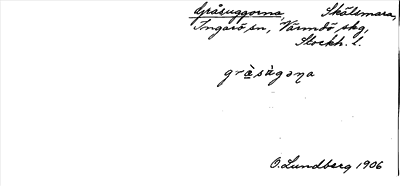 Gråsuggorna, Skälsmara,
Ingarö sn, Värmdö skg,
Stockh. l.
gràsùgəɳa
O. Lundberg 1906